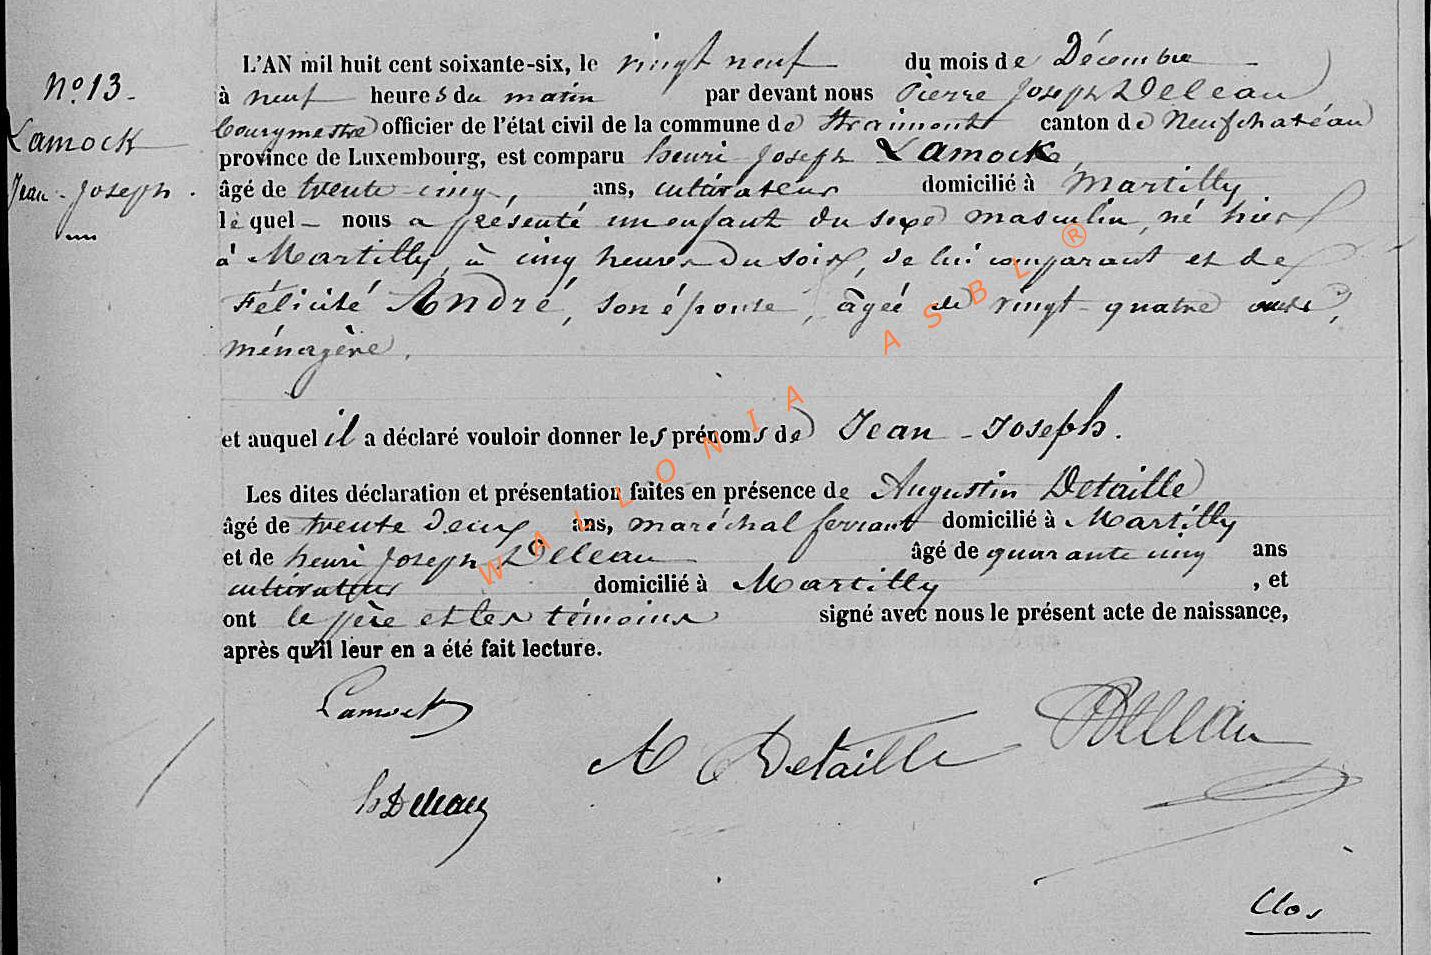 N° 13
Lamock
Jean-Joseph.
L'AN mil huit cent soixante-six, le vingt neuf du mois de Décembre
à neuf heures du matin par devant nous Pierre Joseph Deleau
bourgmestre officier de l'état civil de la commune de Straimont canton de Neufchateau
province de Luxembourg, est comparu henri Joseph Lamock,
âgé de trente cinq, ans, cultivateur domicilié à Martilly
lequel nous a présenté un enfant du sexe masculin, né hier
à Martilly, à cinq heures du soir, de lui comparant et de
Félicité André, son épouse, âgée de vingt-quatre ans,
ménagère.
et auquel il a déclaré vouloir donner les prénoms de Jean-Joseph.
Les dites déclaration et présentation faites en présence de Augustin Detaille
âgé de trente deux ans, maréchal ferrant domicilié à Martilly
et de henri Joseph Deleau âgé de quarante cinq ans
cultivateur domicilié à Martilly, et
ont le père et les témoins signé avec nous le présent acte de naissance,
après qu'il leur en a été fait lecture.
Lamock
A Detaille
Deleau
h Deleau
Clos
WALLONIA ASBL ®